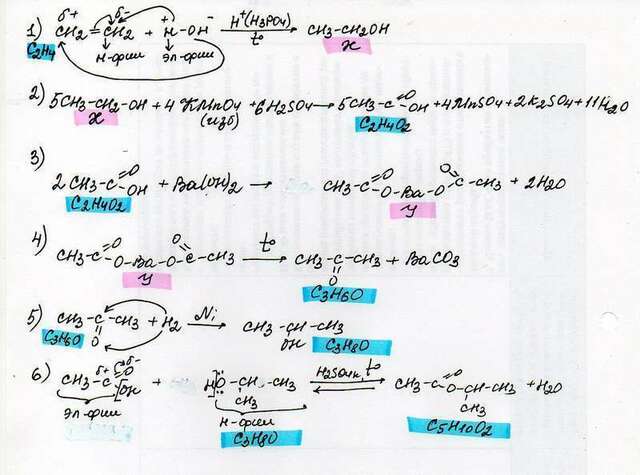 1) CH2=CH2 + H-OH H+(H3PO4) t° → CH3-CH2OH
δ+ δ- + -
C2H4 н-фил эл-фил X
2) 5CH3-CH2-OH + 4 KMnO4 + 6H2SO4 → 5CH3-C=O-OH + 4MnSO4 + 2K2SO4 + 11H2O
X (изб) C2H4O2
3) 2CH3-C=O-OH + Ba(OH)2 → CH3-C=O-O-Ba-O-C=O-CH3 + 2H2O
C2H4O2 У
4) CH3-C=O-O-Ba-O-C=O-CH3 t° → CH3-C-CH3 + BaCO3
O
У C3H6O
5) CH3-C-CH3 + H2 Ni → CH3-CH-CH3
C3H6O O OH C3H8O
6) CH3-C=O[OH + H]O-CH-CH3 H2SO4к, t° ⇄ CH3-C=O-O-CH-CH3 + H2O
δ+ δ- CH3 CH3
эл-фил н-фил C5H10O2
C3H8O